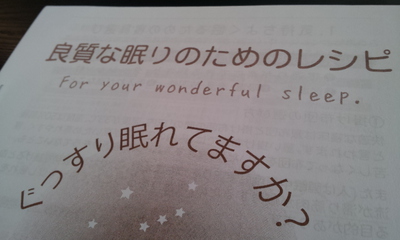 良質な眠りのためのレシピ
For your wonderful sleep.
ぐっすり眠れてますか?